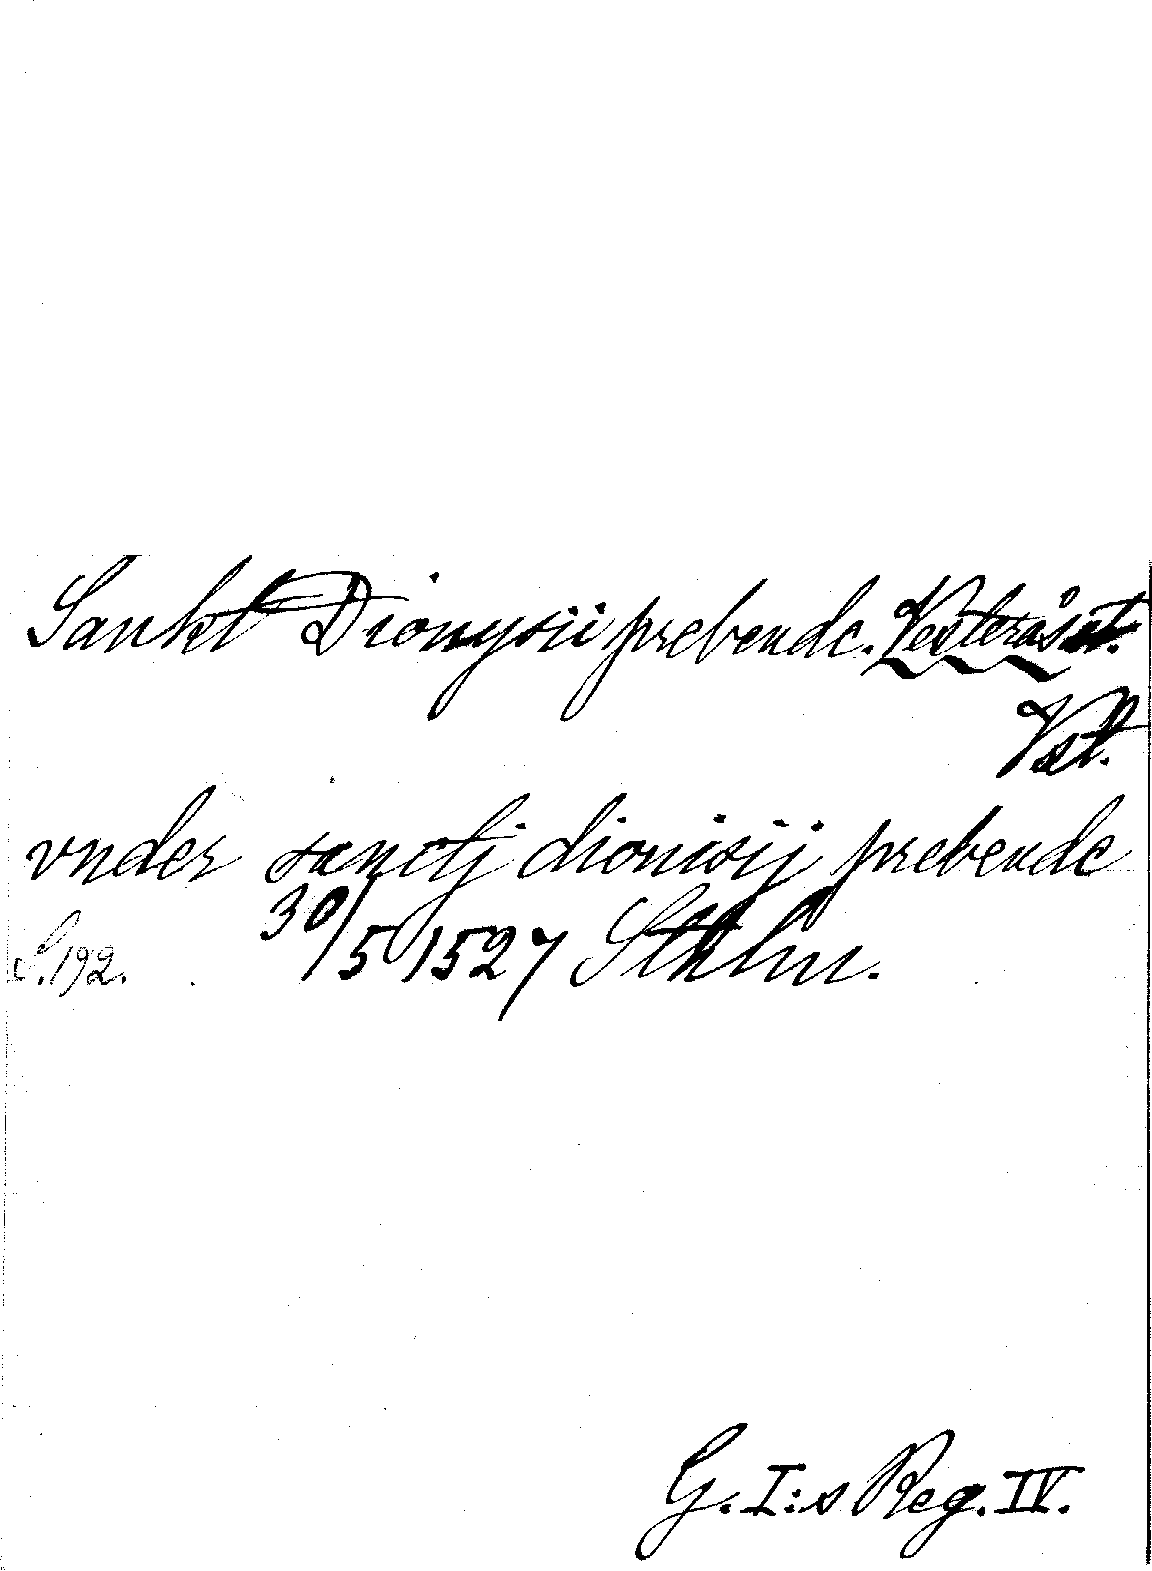 Sankt Dionysii prebende. Vesterås st.
Vst.
vnder sanctj dionisij prebende
S. 192. 30/5 1527 Sthlm.
G. I:s Reg. IV.